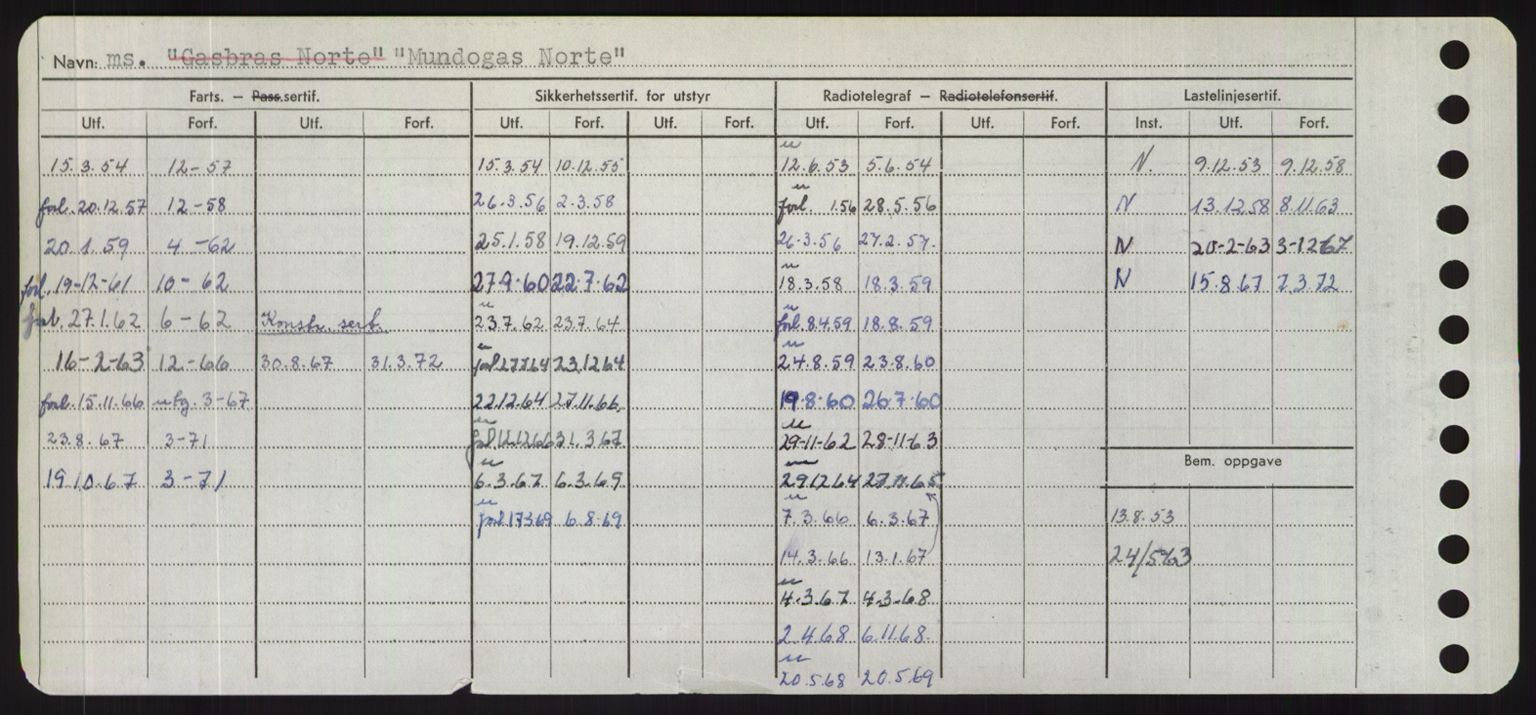 Navn: ms. "Gasbras Norte" "Mundogas Norte"
Farts. — Pass.sertif. Sikkerhetssertif. for utstyr Radiotelegraf — Radiotelefonsertif. Lastelinjesertif.
Utf. Forf. Utf. Forf. Utf. Forf. Utf. Forf. Utf. Forf. Utf. Forf. Inst. Utf. Forf.
15.3.54 12-57 15.3.54 10.12.55 12.6.53 5.6.54 N. 9.12.53 9.12.58
forl. 20.12.57 12-58 26.3.56 2.3.58 forl. 1.56 28.5.56 N 13.12.58 8.11.63
20.1.59 4-62 25.1.58 19.12.59 26-3.56 27.2.57. N 20-2-63 3-1267
forl. 19-12-61 10-62 27.9.60 22.7.62 18.3.58 18.3.59 N 15.8.67 7.3.72
forl. 27.1.62 6-62 Konstr. sert. 23.7.62 23.7.64 forl. 8.4.59 18.8.59
16-2-63 12-66 30.8.67 31.3.72 forl. 27764 231264 24.8.59 23.8.60
forl. 15.11.66 utg. 3-67 22.12.64 27.11.66. 19.8.60 26.7.60
23.8.67 3-71 forl. 31.3.67 29-11-62 28-11-63
19.10.67 3-71 6.3.67 6.3.69 29.12.64 27.11.65
forl. 17369 6.8.69 7.3.66 6.3.67
14.3.66 13.1.67
4.3.67 4.3.68
2.4.68 6.11.68.
20.5.68 20.5.69
Bem. oppgave
13.8.53
24/5-63